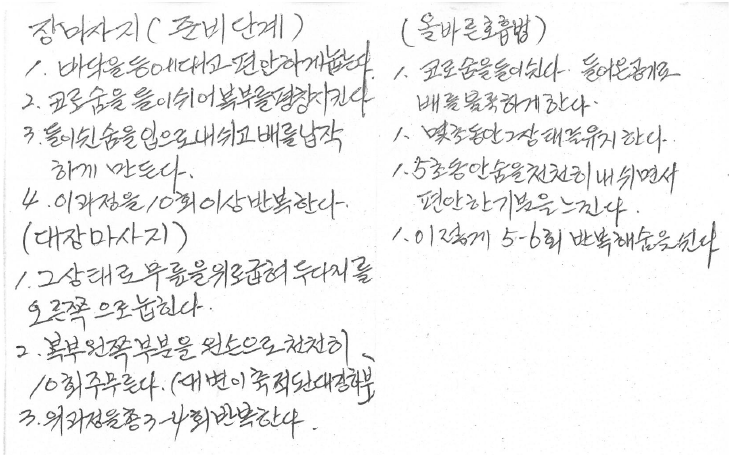 장마사지(준비단계)
1. 바닥을등에대고편안하게눕는다.
2. 코로숨을들이쉬어복부를팽창시킨다
3. 들이쉰숨을입으로내쉬고배를납작
하게 만든다.
4. 이과정을10회이상반복한다.
(대장마사지)
1. 그상태로무릎을위로굽혀두다리를
오른쪽으로눕힌다.
2. 복부왼쪽부분을 왼손으로천천히
10회주무른다. (대변이축적된대장하부)
3. 위과정을총3-4회반복한다.
(올바른호흡법)
1. 코로숨을들이쉰다. 들어온공기로
배를볼록하게한다.
1. 몇초동안그상태를유지한다.
1. 5초동안숨을천천히내쉬면서
편안한기분을느낀다.
1. 이렇게 5-6회 반복해숨을쉰다